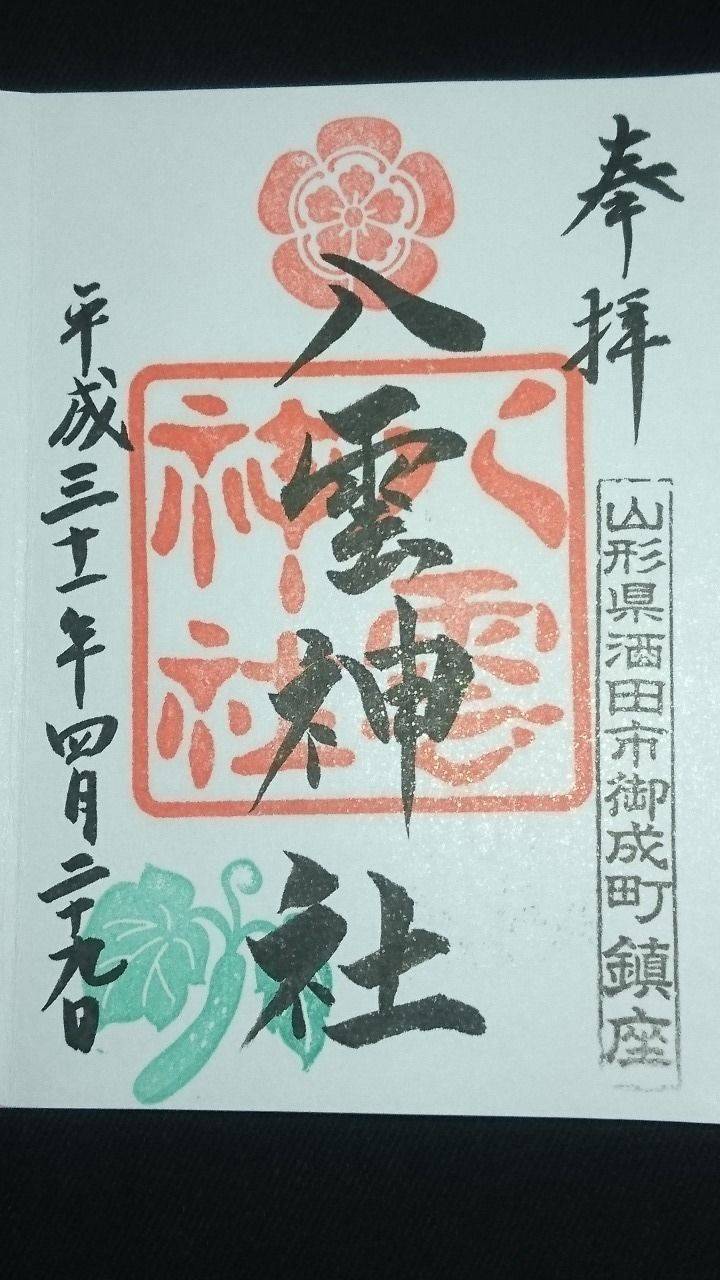 奉拝
山形県酒田市御成町鎮座
八雲神社
八雲神社
平成三十一年四月二十九日